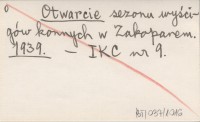 Otwarcie sezonu wyści-
gów konnych w Zakopanem.
1939. - IKC nr 9.